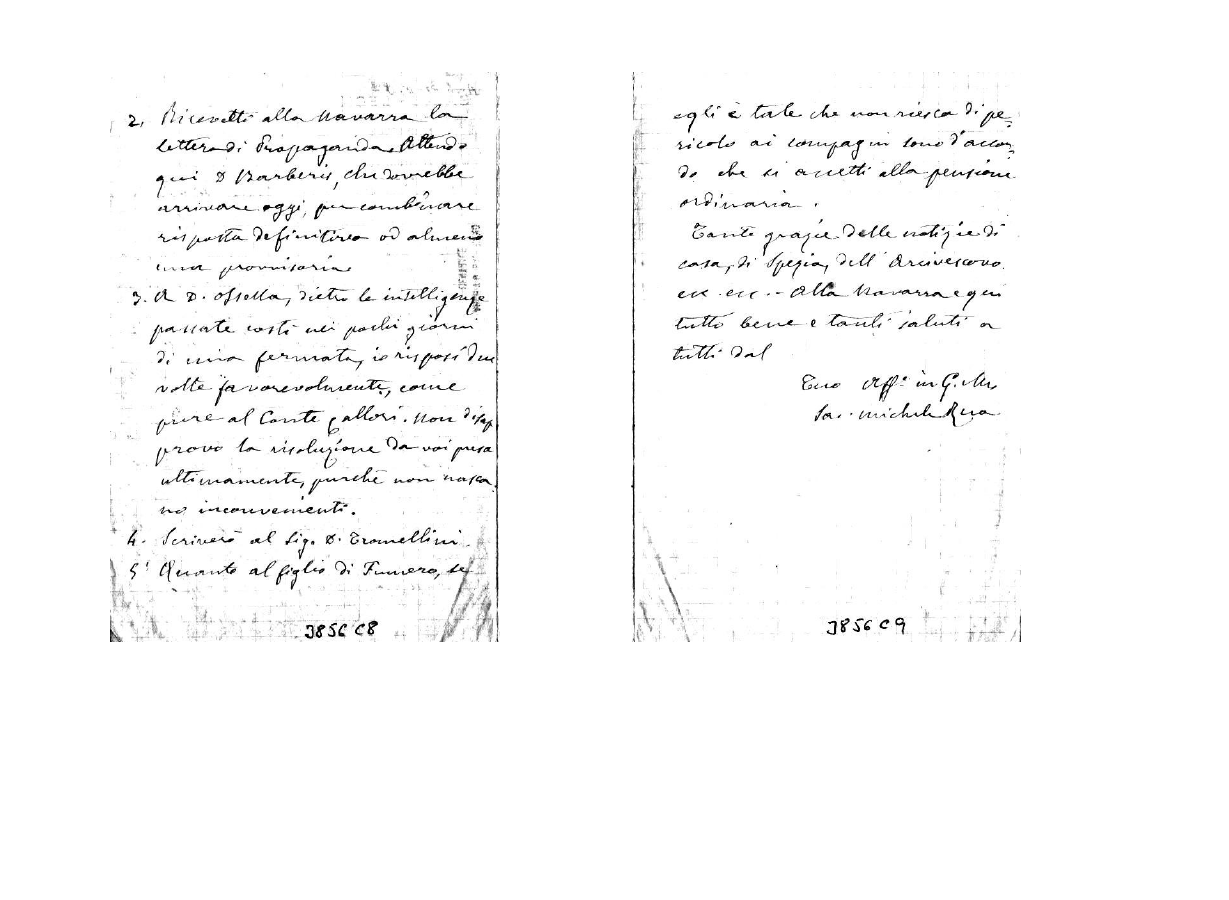 2. Ricevetti alla Navarra la
lettera di Propaganda. Attendo
qui D. Barberis, che dovrebbe
arrivare oggi, per combinare
risposta definitiva od almeno
una provvisoria
3. A D. Ossella, dietro le intelligenze
passate costì nei pochi giorni
di mia fermata, io risposi due
volte favorevolmente, come
pure al Conte Callori. Non disap
provo la risoluzione da voi presa
ultimamente, purchè non nasca
no inconvenienti.
4. Scriverò al Sig. D. Tomellini
5° Quanto al figlio di Fumero, se
J856 C8
egli è tale che non riesca di pe-
ricolo ai compagni sono d'accor-
do che si accetti alla pensione
ordinaria.
Tante grazie delle notizie di
casa, di Spezia, dell'Arcivescovo
ecc. ecc. - Alla Navarra e qui
tutto bene e tanti saluti a
tutti dal
Tuo Aff.° in G. M.
Sac. Michele Rua
J856 C9